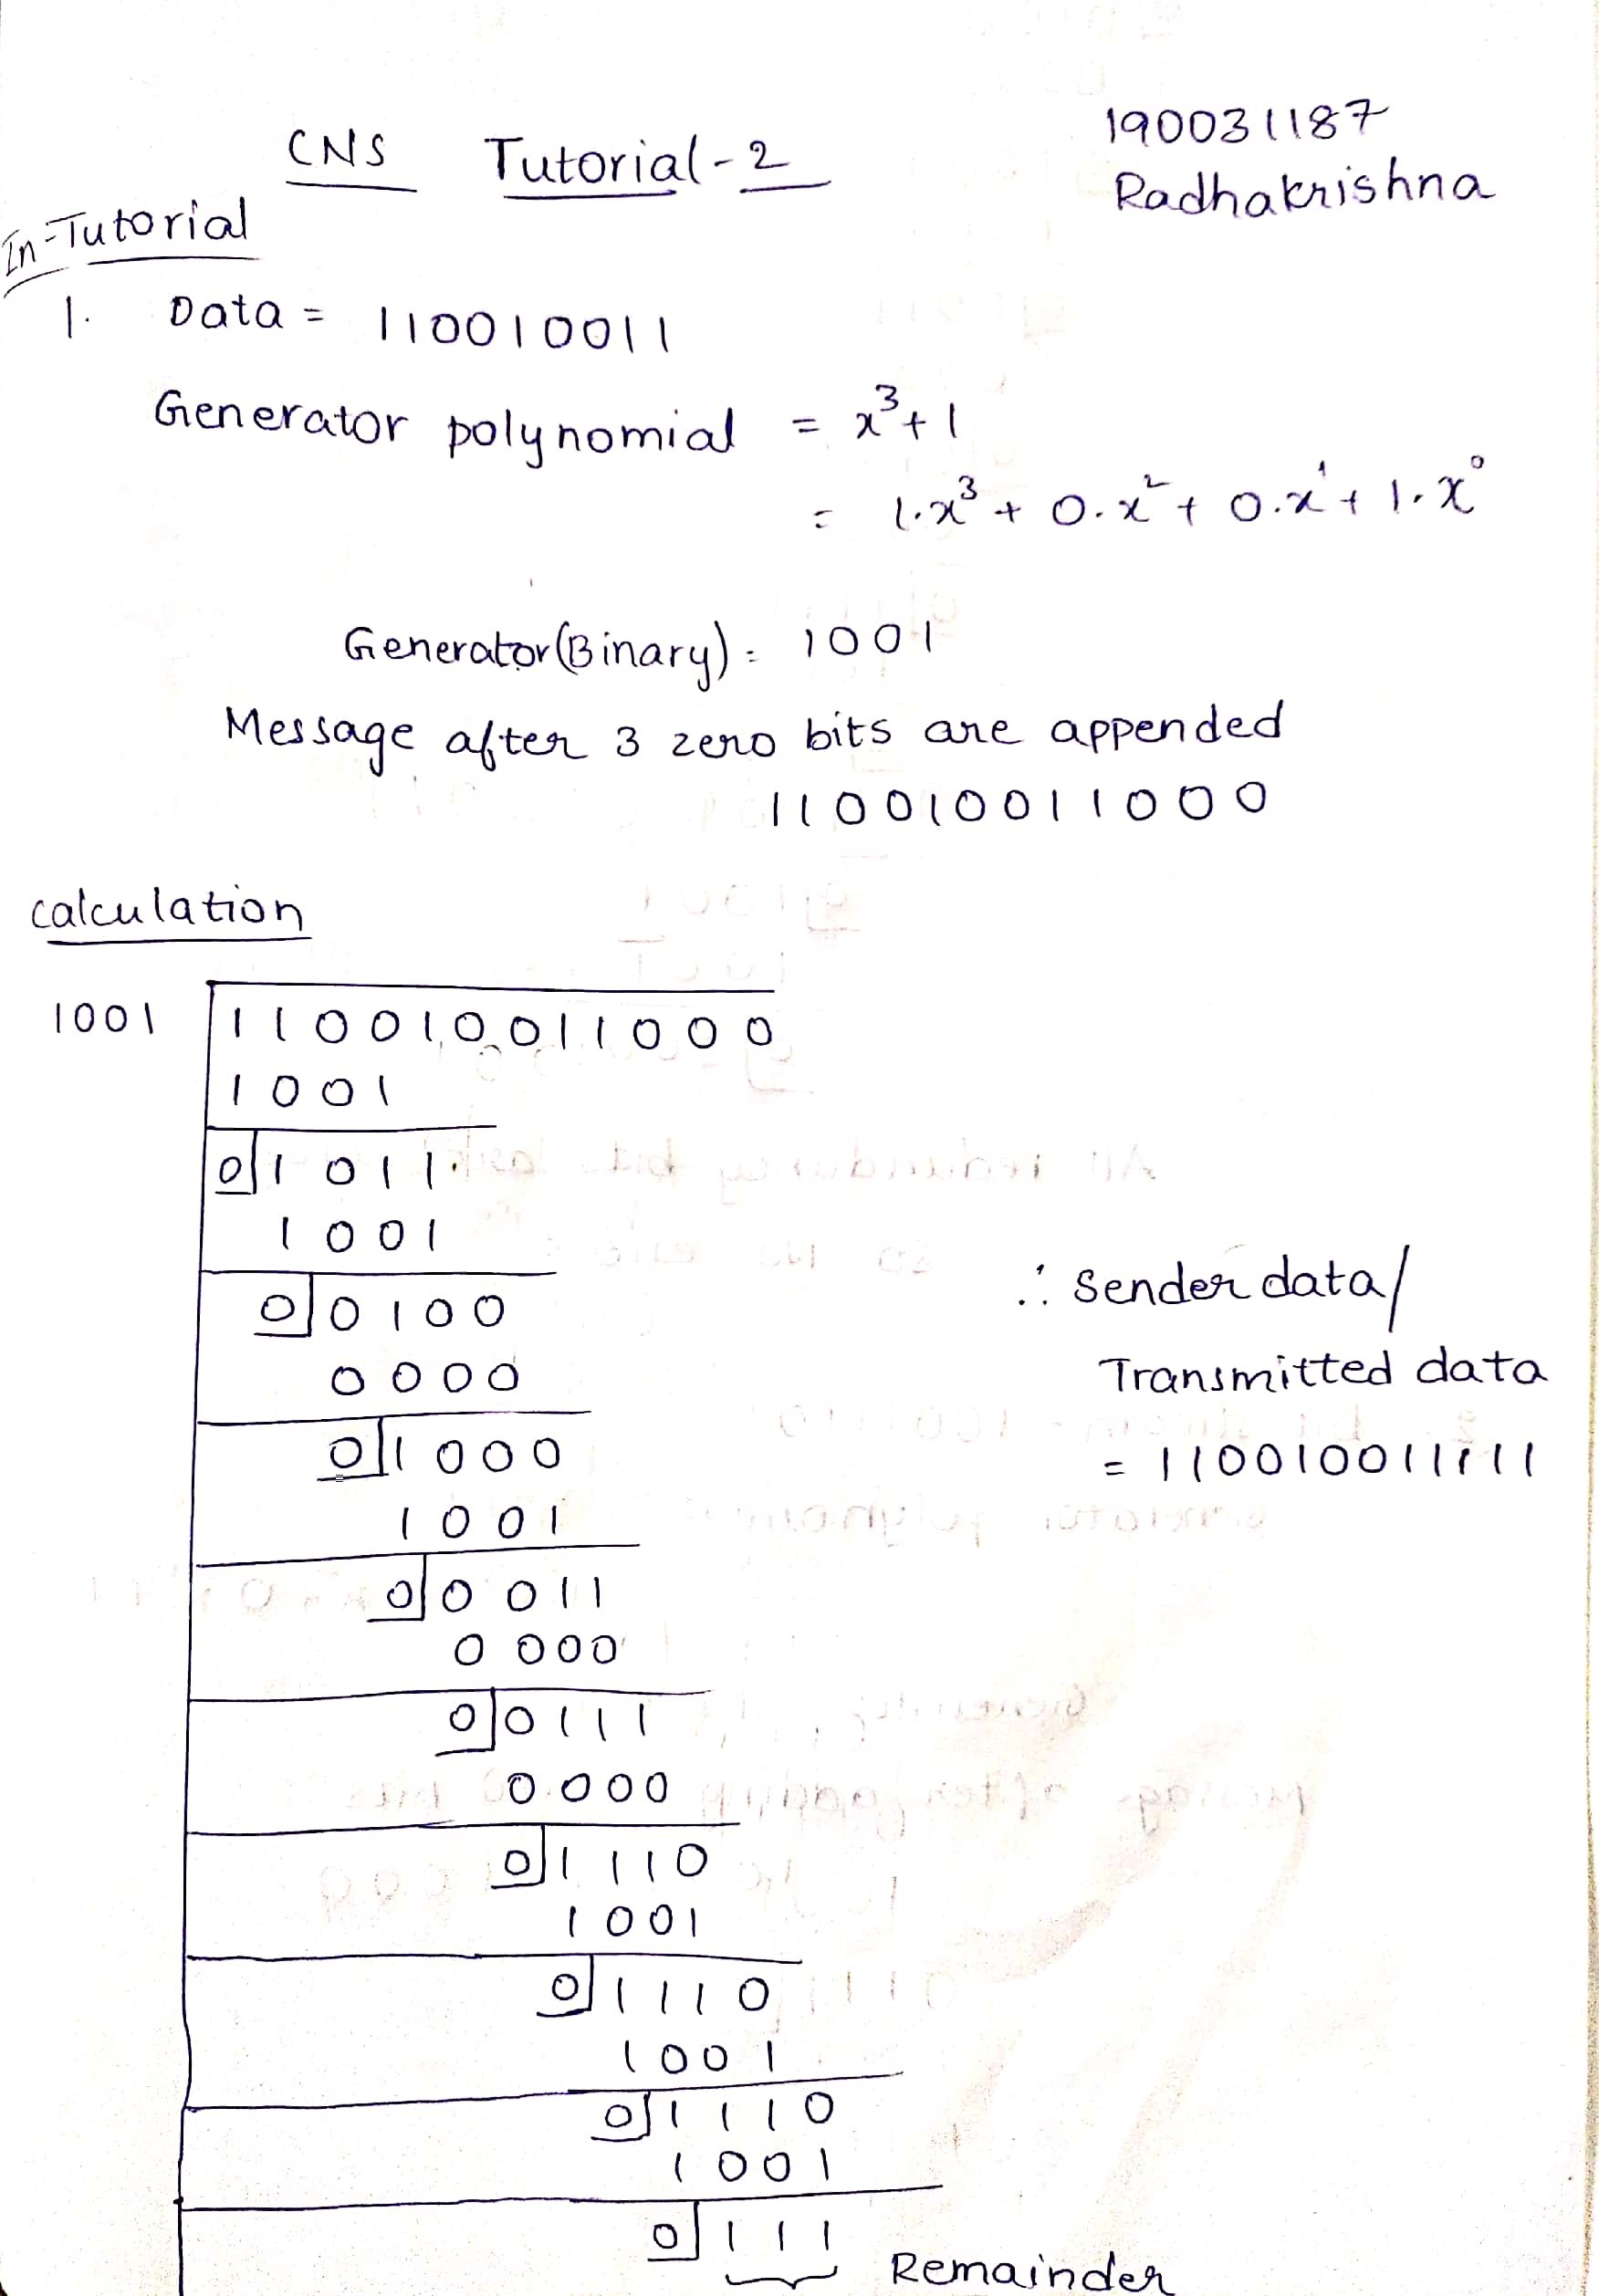 190031187
CNS Tutorial-2
Radhakrishna
In-Tutorial
1. Data = 110010011
Generator polynomial = x³+1
= 1.x³ + 0.x² + 0.x¹ + 1.x⁰
Generator(Binary) = 1001
Message after 3 zero bits are appended
110010011000
calculation
1001 110010011000
1001
01011
1001
00100
0000
01000
1001
00011
0000
00111
0000
01110
1001
01110
1001
01110
1001
0111
Remainder
∴ Sender data/
Transmitted data
= 110010011111